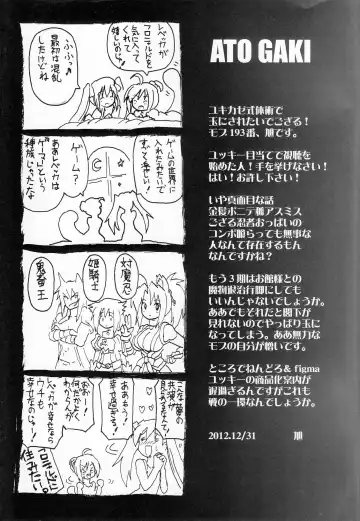 レベッカが
フロニルドを
気に入って
くれて
嬉しいのじゃ!
ふふっ♪
最初は混乱
したけどね
ゲームの世界に
入れたみたいで
すっごく楽しい!
ゲーム?
ああレベッカは
ゲコゴという
種族じゃったな
対魔忍
姫騎士
鬼畜王
ATO GAKI
ユキカゼ式体術で
玉にされたいでござる!
モブ193番、旭です。
ユッキー目当てで視聴を
始めた人!手を挙げなさい!
はい!お許し下さい!
いや真面目な話
金髪ボニテ狐アスミス
ござる忍者おっぱいの
コンボ喰らっても無事な
人なんて存在するもん
なんですかね?
もう3期はお館様との
魔物退治行脚にしても
いいんじゃないでしょうか。
ああでもそれだと閣下が
見れないのでやっぱり玉に
なってしまう。ああ無力な
モブの自分が憎いです。
ところでねんどろ& figma
ユッキーの商品化案内が
遅過ぎるんですがこれも
戦の一環なんでしょうか。
2012.12/31 旭